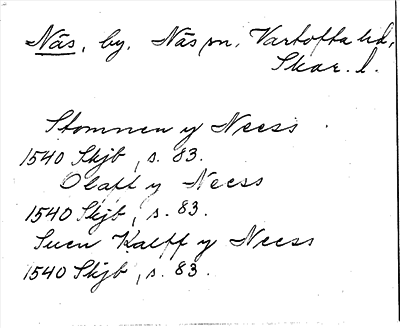 Näs, by, Näs sn, Vartofta hd,
Skar. l.
Stommen y Neess
1540 Skjb, s. 83.
Olaff y Neess
1540 Skjb, s. 83.
Suen Kalff y Neess
1540 Skjb, s. 83.